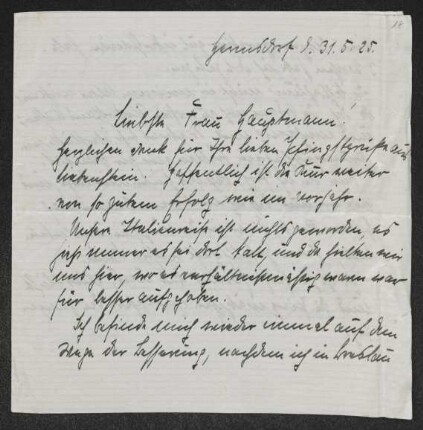 Hermsdorf d. 31.5.25.
Liebste Frau Hauptmann!
Herzlichen Dank für Ihre lieben Pfingstgrüße aus
Liebenstein. Hoffentlich ist die Kur weiter
von so gutem Erfolg wie im vorjahr.
Unsere Italienreise ist nichts geworden, es
immer es sei dort kalt, und da hielten wir
uns hier, wo es verhältnismässig warm war
für besser aufgehoben.
Ich befinde mich wieder einmal auf dem
Wege der Besserung, nachdem ich in Breslau